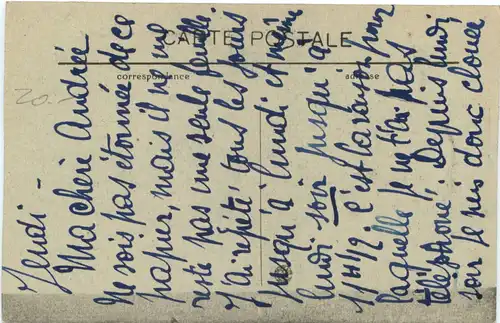 CARTE POSTALE
correspondance
adresse
20.-
Jeudi -
Ma chère Andrée
Ne sois pas étonnée de ce
papier, mais il ne me
reste pas une seule feuille.
J'ai répété tous les jours
jusqu'à lundi et même
lundi soir jusqu'à
11 H 1/2. C'est la raison pour
laquelle je ne t'ai pas
téléphoné. Depuis lundi
soir je suis donc clouée